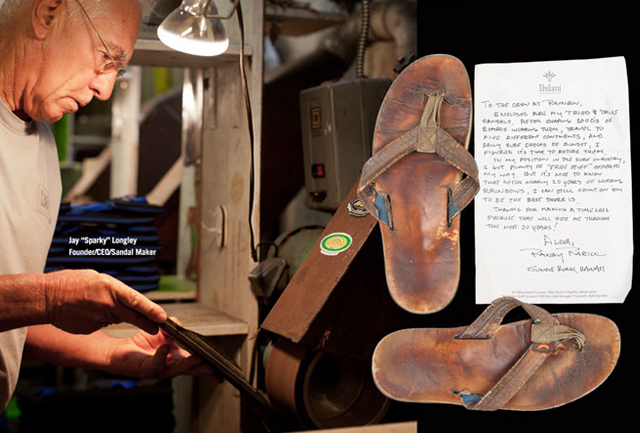 Jay "Sparky" Longley
Founder/CEO/Sandal Maker
Ihilani
TO THE CREW AT RAINBOW,
ENCLOSED ARE MY TRIED & TRUE
SANDALS. AFTER SHAPING 1000'S OF
BOARDS WEARING THEM, TRAVEL TO
FIVE DIFFERENT CONTINENTS, AND
DAILY SURF CHECKS OF SUNSET, I
FIGURED IT'S TIME TO RETIRE THEM.
IN MY POSITION IN THE SURF INDUSTRY,
I GET PLENTY OF "FREE STUFF"
MY WAY. BUT IT'S NICE TO KNOW
THAT AFTER NEARLY 20 YEARS OF WEARING
RAINBOWS, I CAN STILL COUNT ON 'EM
TO BE THE BEST THERE IS.
THANKS FOR MAKING A TIMELESS
PRODUCT THAT WILL GET ME THROUGH
THE NEXT 20 YEARS!
ALOHA,
SUNSET BEACH, HAWAII